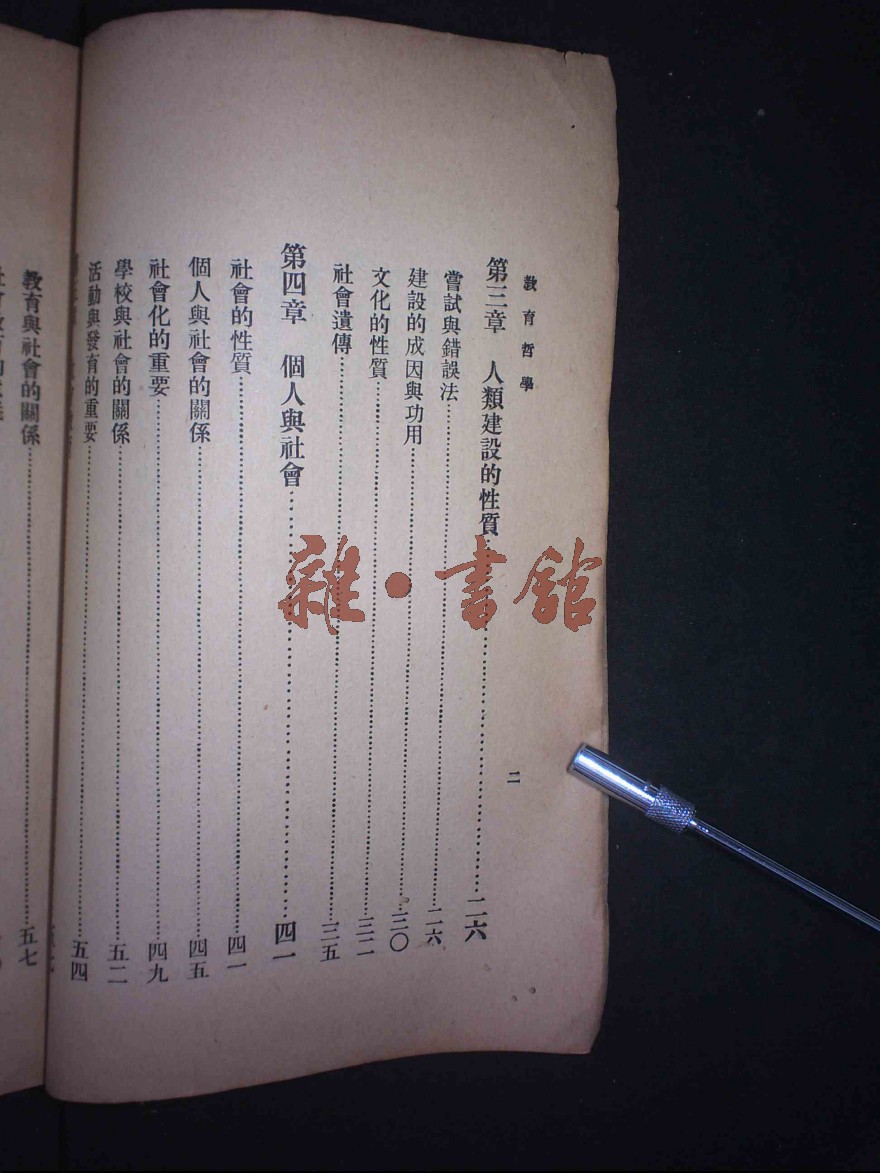 教育哲學
第三章 人類建設的性質 二六
嘗試與錯誤法 二六
建設的成因與功用 三〇
文化的性質 三二
社會遺傳 三五
第四章 個人與社會 四一
社會的性質 四一
個人與社會的關係 四五
社會化的重要 四九
學校與社會的關係 五二
活動與發育的重要 五四
二
教育與社會的關係 五七
雜·書館